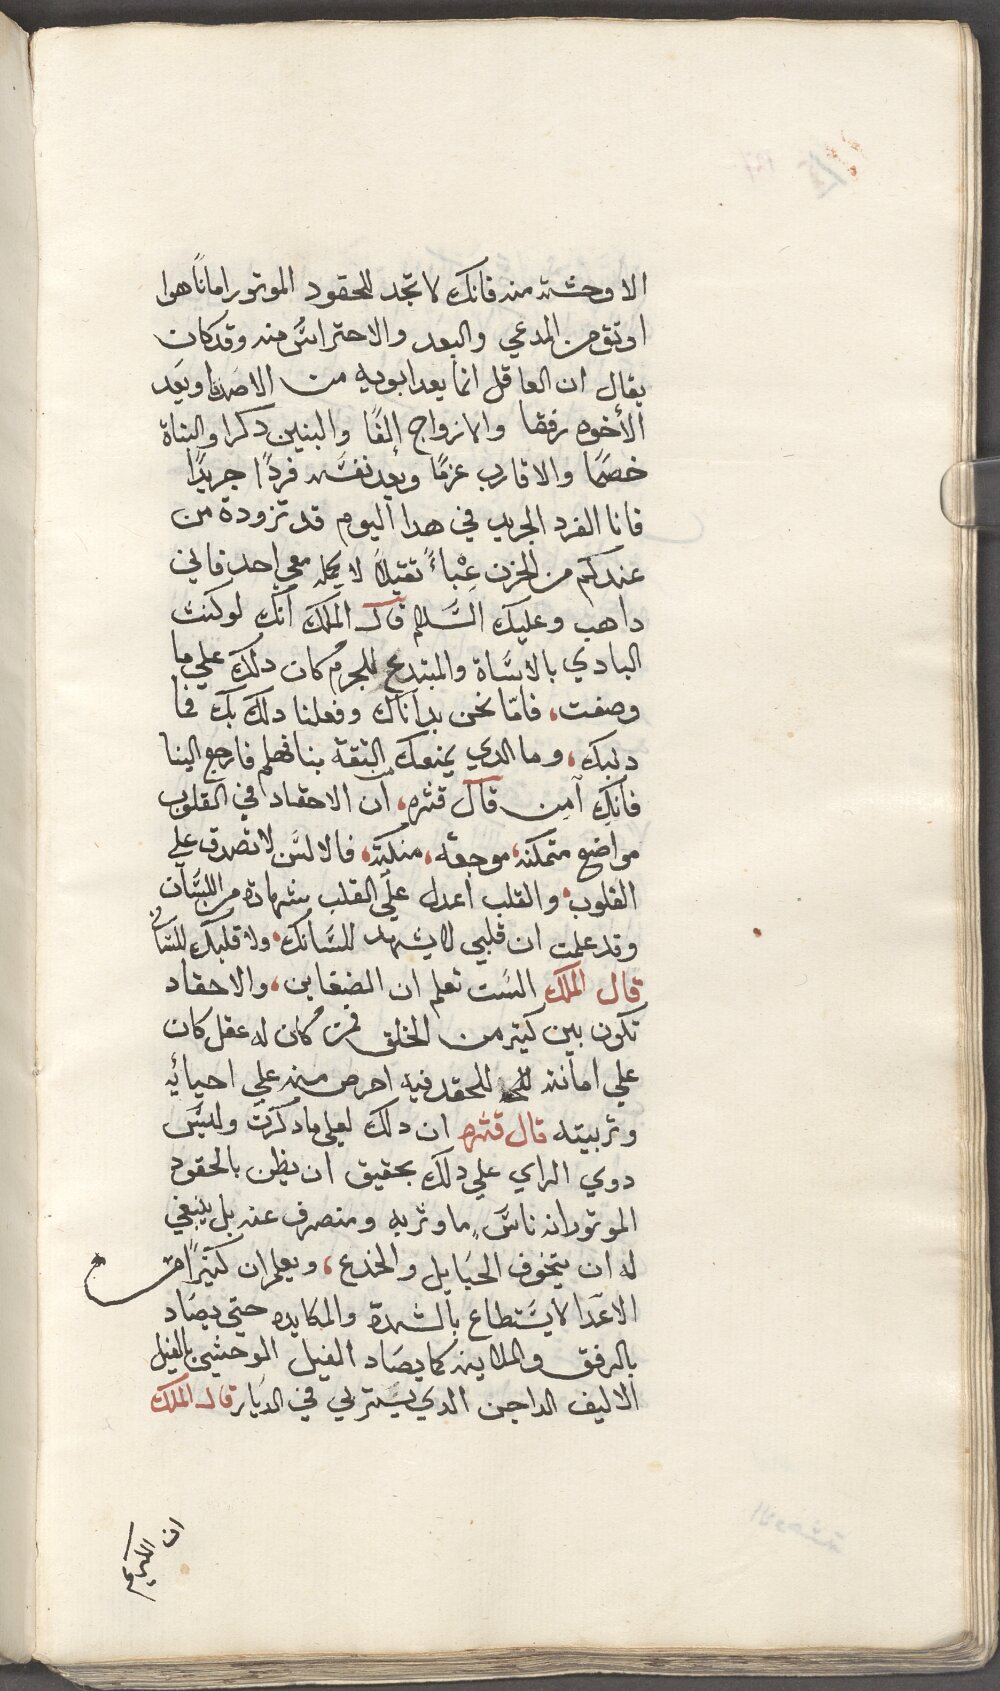 الا وحشة منه فانك لا تجد للحقود الموتور اماناً هوا
اوثق من المدعي والبعد والاحتراسُ منه وقد كان
يقال ان العاقل انما يعد ابويه من الاصدقا ويَعد
الأخوه رفقا والازواج إلفًا والبنين دكرا والبناة
خصمًا والاقارب غرمًا ويعد نفسَه فردًا جريدًا
فانا الفرد الجريد في هدا اليوم قد تزودة من
عندكم من الحزن عِبْاءً ثقيلاً لا يحمله معي احد فاني
داهب وعليك السَّلام قال الملك انك لو كنت
البادي بالاسَاة والمبتدع للجرم كان دلك علي ما
وصفت، فامّا نحن بداناك وفعلنا دلك بك فما
دنبك، وما الدي يمنعك الثقة بنا فهلم فارجع الينا
فانك آمن قال قنزه، ان الاحقاد في القلوب
مواضع متمكنه، موجعه، منكية، فالالسَن لا تصدق علي
القلوب، والقلب اعدل علي القلب بشهادة من اللسَان
وقد علمت ان قلبي لا يشهد للسَانك، ولا قلبك للسَاني
قال الملك السَت تعلم ان الضغاين، والاحقاد
تكون بين كثير من الخلق فمن كان له عقل كان
علي اماتة للحقد فيه احرص منه علي احيائه
وتربيته قال قنزه ان دلك لعلي ما دكرت وليسَ
دوي الراي علي دلك بحقيق ان يظن بالحقود
الموتور انه ناسَ ما وتر به ومنصرف عنه بل ينبغي
له ان يتخوف الحبايل والخدع، ويعلم ان كثيرًا من
الاعدا لا يسَتطاع بالشدة والمكايده حتي يصَاد
بالرفق والملاينه كما يصَاد الفيل الوحشي بالفيل
الاليف الداجن الدي يسَتربي في الديار قال الملك
ان الكريم